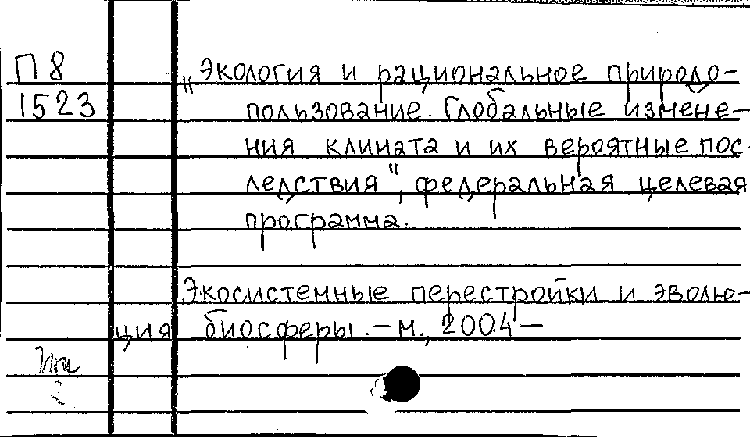 П 8
1523
„Экология и рациональное природо-
пользование. Глобальные измене-
ния климата и их вероятные пос-
ледствия", федеральная целевая
программа.
Экосистемные перестройки и эволю-
ция биосферы. – м., 2004 –